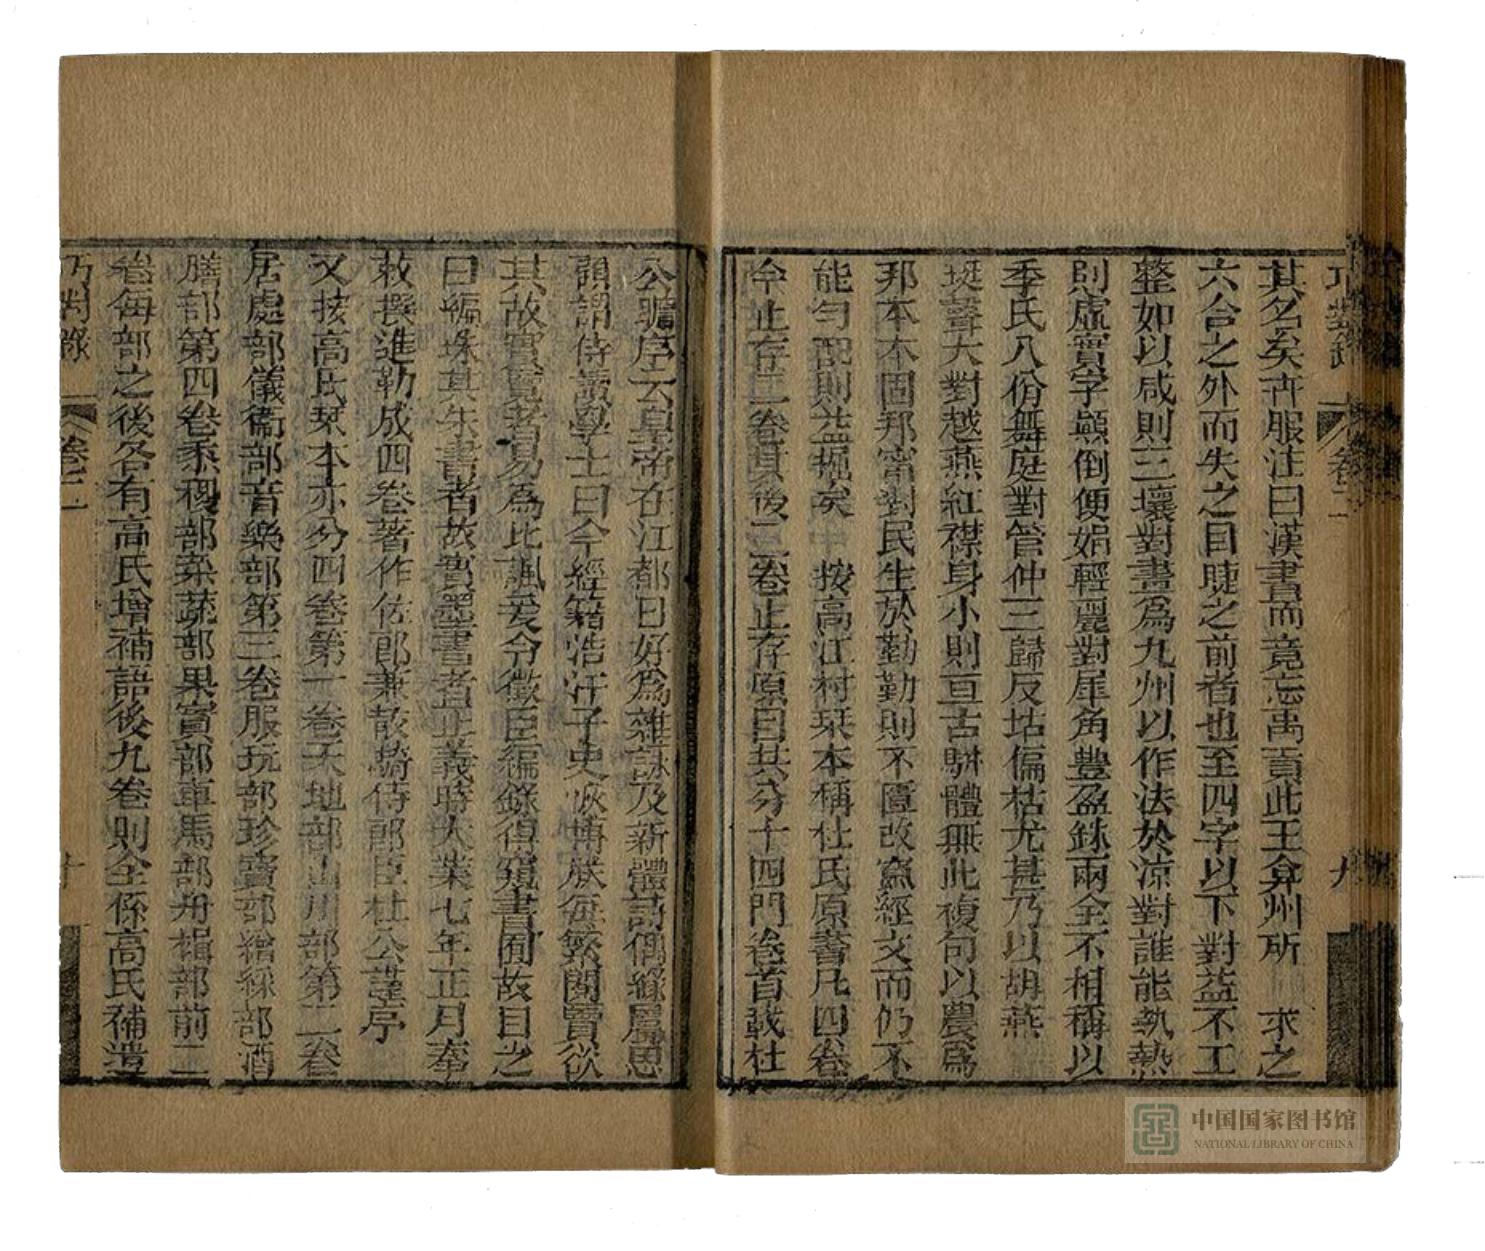 巧對錄 卷二 九
其名矣卉服注曰漢書而竟忘禹貢此王弇州所 求之
六合之外而失之目睫之前者也至四字以下對益不工
整如以咸則三壤對畫為九州以作法於涼對誰能執熱
則虛實字顛倒便娟輕麗對犀角豊盈銖兩全不相稱以
季氏八佾舞庭對管仲三歸反坫偏枯尤甚乃以胡燕
斑聲大對越燕紅襟身小則亘古駢體無此複句以農為
邦本本固邦甯對民生於勤勤則不匱改竄經文而仍不
能勻配則益拙矣 按高江村栞本稱杜氏原書凡四卷
今止存二卷其後二卷止存原目共分十四門卷首載杜
公瞻序云皇帝在江都日好為雜詠及新體詩偶緣屬思
顧謂侍讀學士曰今經籍浩汗子史恢博朕每繁閱覽欲
其故實覽者易為比諷爰令微臣編錄得窺書囿故目之
曰編珠其朱書者故實墨書者正義時大業七年正月奉
敕撰進勒成四卷著作佐郎兼散騎侍郎臣杜公瞻序
又按高氏栞本亦分四卷第一卷天地部山川部第二卷
居處部儀衞部音樂部第三卷服玩部珍寶部繒綵部酒
膳部第四卷黍稷部菜蔬部果實部車馬部舟楫部前二
卷每部之後各有高氏增補語後九卷則全係高氏補遺
巧對錄 卷二 十
中国国家图书馆
NATIONAL LIBRARY OF CHINA